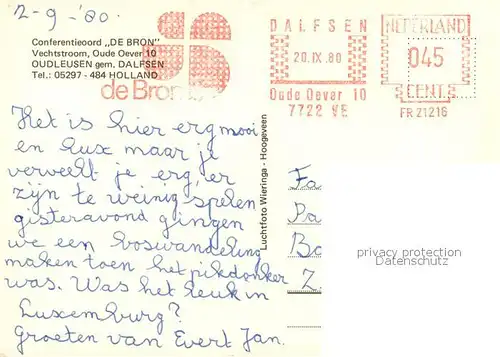 2-9-'80.
Conferentieoord „DE BRON"
Vechtstroom, Oude Oever 10
OUDLEUSEN gem. DALFSEN
Tel.: 05297 - 484 HOLLAND
de Bron
DALFSEN
20.IX.80
Oude Oever 10
7722 VE
NEDERLAND
045
CENT
FR 21216
Het is hier erg mooi
en luxe maar je
verveelt je erg, er
zijn te weinig spelen
gisteravond gingen
we een boswandeling
maken toen het pikdonker
was. Was het leuk in
Luxemburg?
Groeten van Evert Jan.
Luchtfoto Wieringa - Hoogeveen
Fa
Pa
Bo
Z
privacy protection
Datenschutz